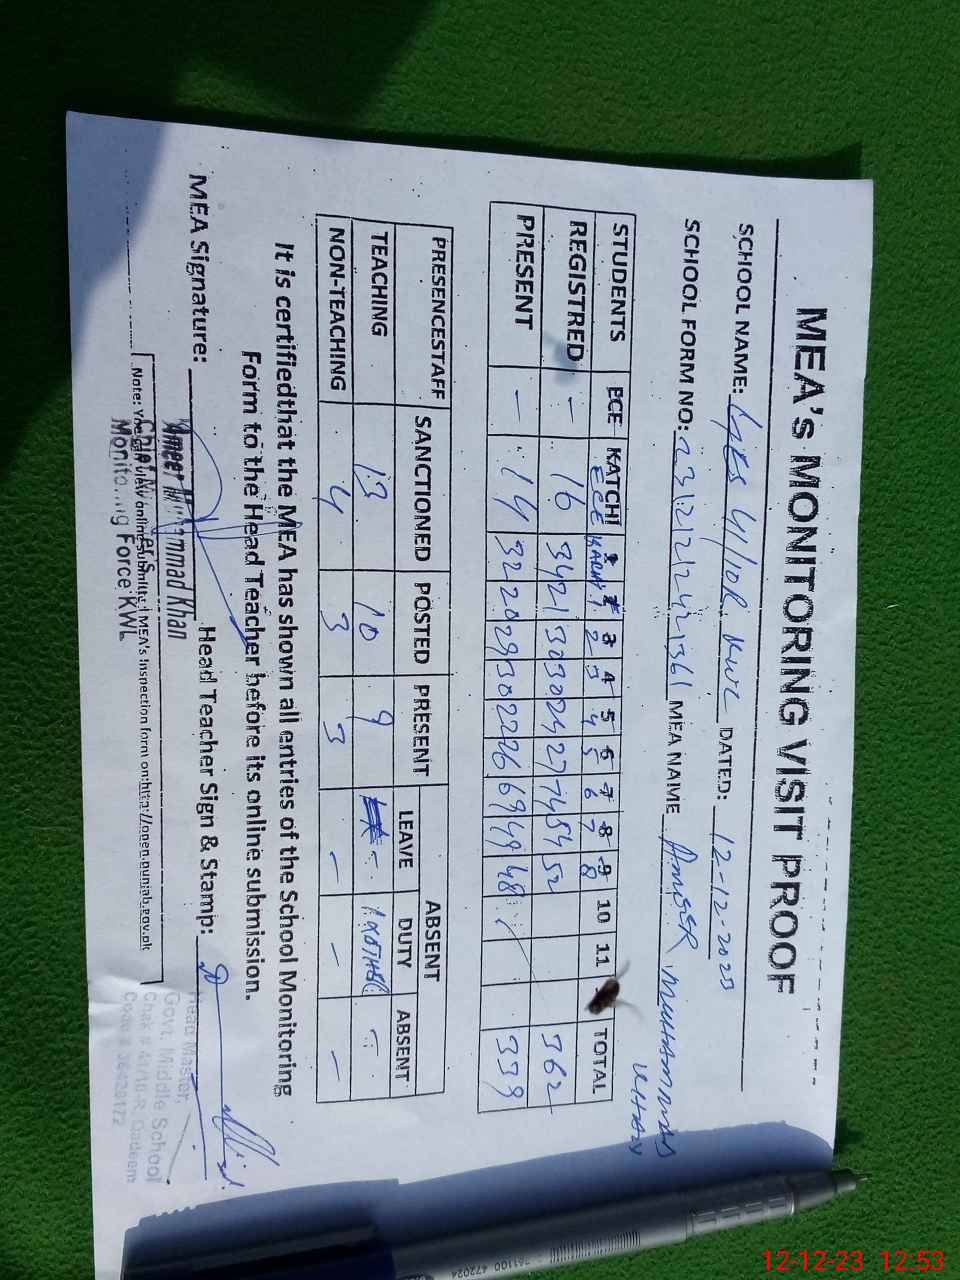 MEA's MONITORING VISIT PROOF
SCHOOL NAME: 41/10R KWL DATED: 12-12-2023
SCHOOL FORM NO: MEA NAME AMEER MUHAMMAD KHAN
STUDENTS PCE KATCHI 1 2 3 4 5 6 7 8 9 10 11 TOTAL
ECE KACHI 1 2 3 4 5 6 7 8
REGISTRED - 16 34 21 30 30 24 27 74 54 52 362
PRESENT - 14 32 20 29 30 22 26 69 49 48 339
PRESENCESTAFF SANCTIONED POSTED PRESENT ABSENT
LEAVE DUTY ABSENT
TEACHING 13 10 9 - 1 OTHER -
NON-TEACHING 4 3 3 - - -
It is certifiedthat the MEA has shown all entries of the School Monitoring
Form to the Head Teacher before its online submission.
MEA Signature: Head Teacher Sign & Stamp:
Ameer Muhammad Khan
Monitoring Force KWL
Note: You can view online submitted MEA's Inspection form on:http://open.punjab.gov.pk
Head Master,
Govt. Middle School
Chak # 41/10-R, Qadeem
Code # 36420172
761100 472024
12-12-23 12:53